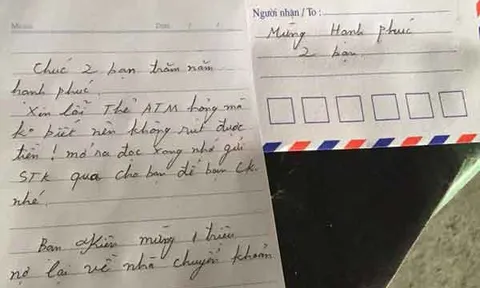 Memo
Date / /
Chúc 2 bạn trăm năm
hạnh phúc.
Xin lỗi Thẻ ATM hỏng mà
ko biết nên không rút được
tiền! mở ra đọc xong nhớ gửi
STK qua cho bạn để bạn CK
nhé.
Bạn Kiên mừng 1 triệu
nợ lại về nhà chuyển khoản
Người nhận / To :
Mừng Hạnh phúc
2 bạn.